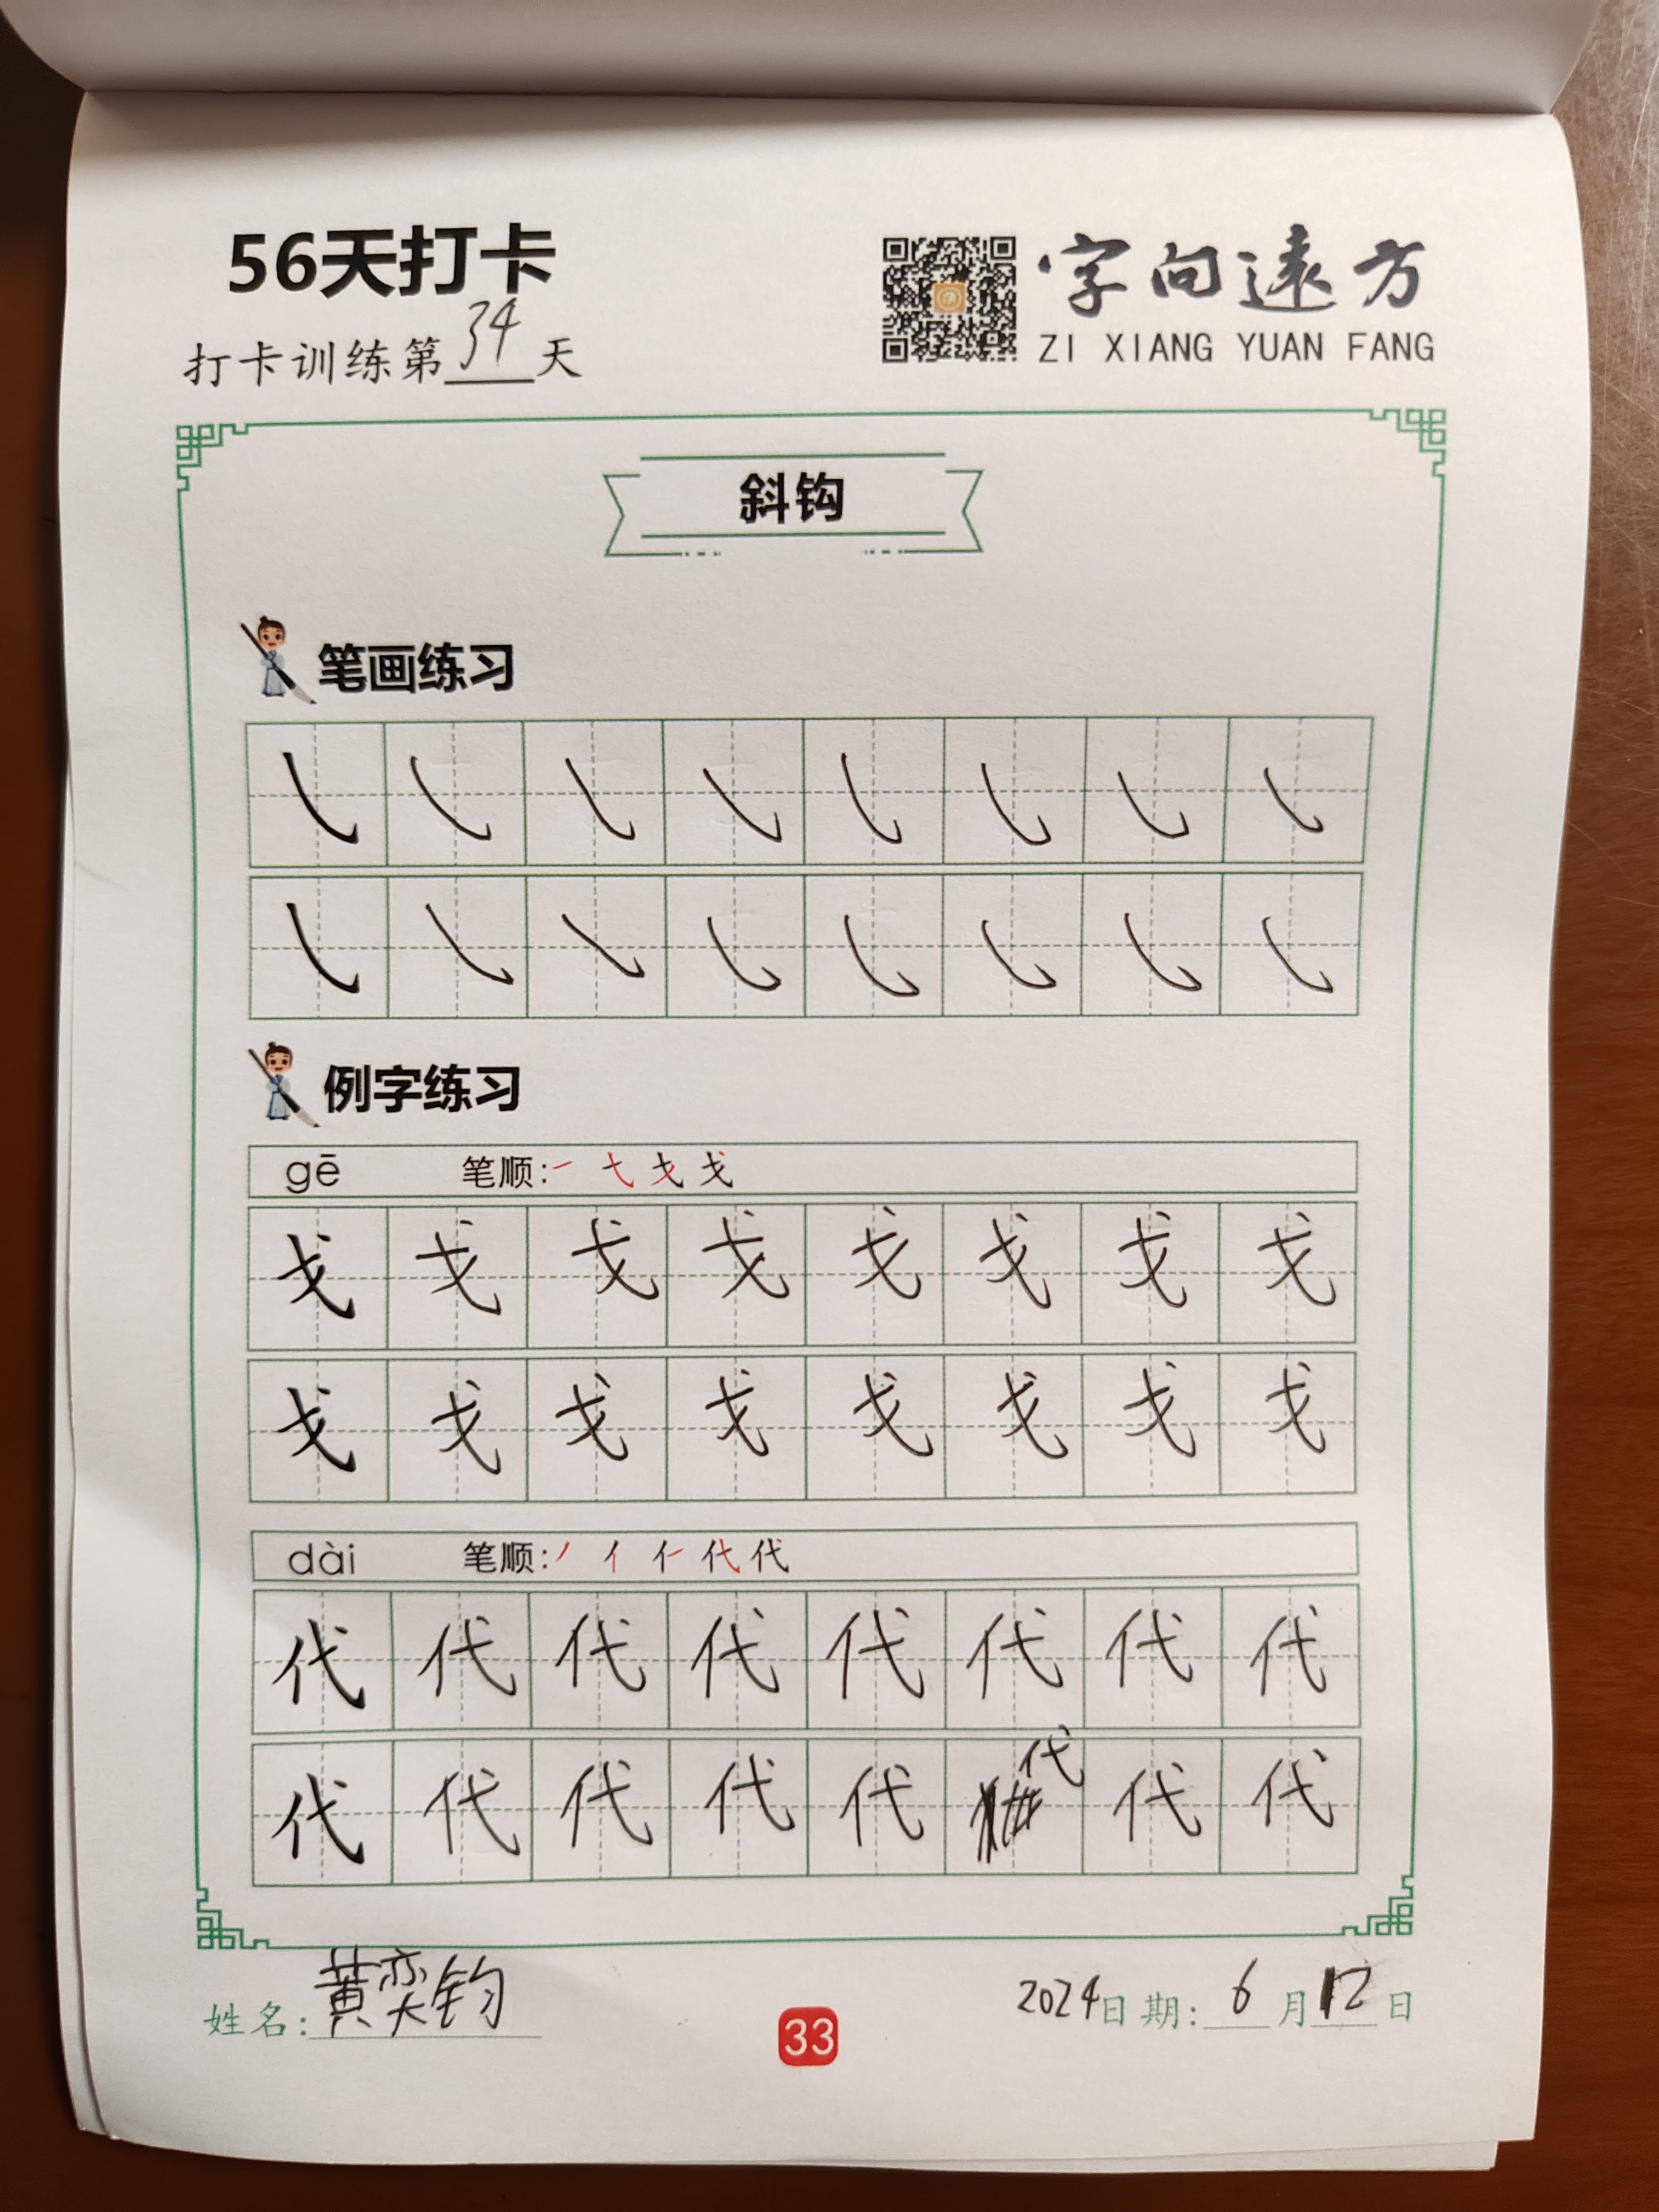 56天打卡
字向遠方
ZI XIANG YUAN FANG
打卡训练第34天
斜钩
笔画练习
例字练习
gē 笔顺:
戈 戈 戈 戈 戈 戈 戈 戈
戈 戈 戈 戈 戈 戈 戈 戈
dài 笔顺:
代 代 代 代 代 代 代 代
代 代 代 代 代 代 代 代
姓名:黄奕钧
2024日期:6月12日
33